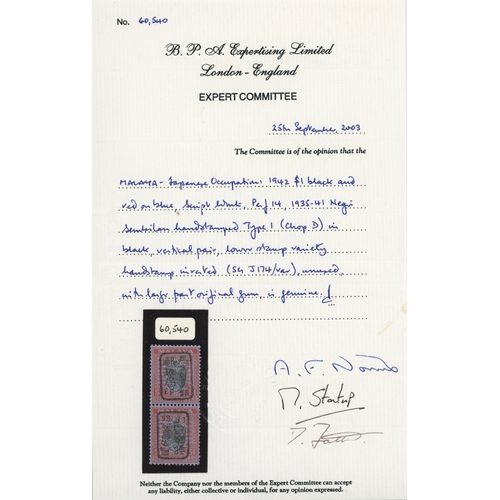 No. 60,540
B. P. A. Expertising Limited
London - England
EXPERT COMMITTEE
25th September, 2003
The Committee is of the opinion that the
MALAYA - Japanese Occupation: 1942 $1 black and
red on blue, Script wmk, Perf 14, 1935-41 Negri
Sembilan handstamped Type 1 (Chop D) in
black, vertical pair, lower stamp variety
handstamp inverted (SG J174/var), unused,
with large part original gum, is genuine.
60,540
M. Startup
Neither the Company nor the members of the Expert Committee can accept
any liability, either collective or individual, for any opinion expressed.